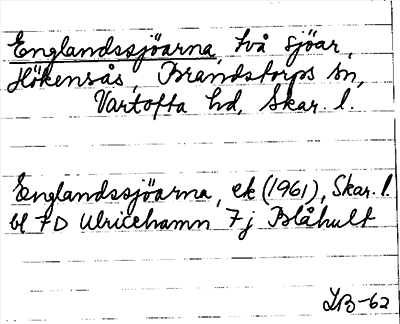 Englandssjöarna, två sjöar,
Hökensås, Brandstorps sn,
Vartofta hd, Skar. l.
Englandssjöarna, ek (1961), Skar. l.
bl 7D Ulricehamn 7j Blåhult
LB-62